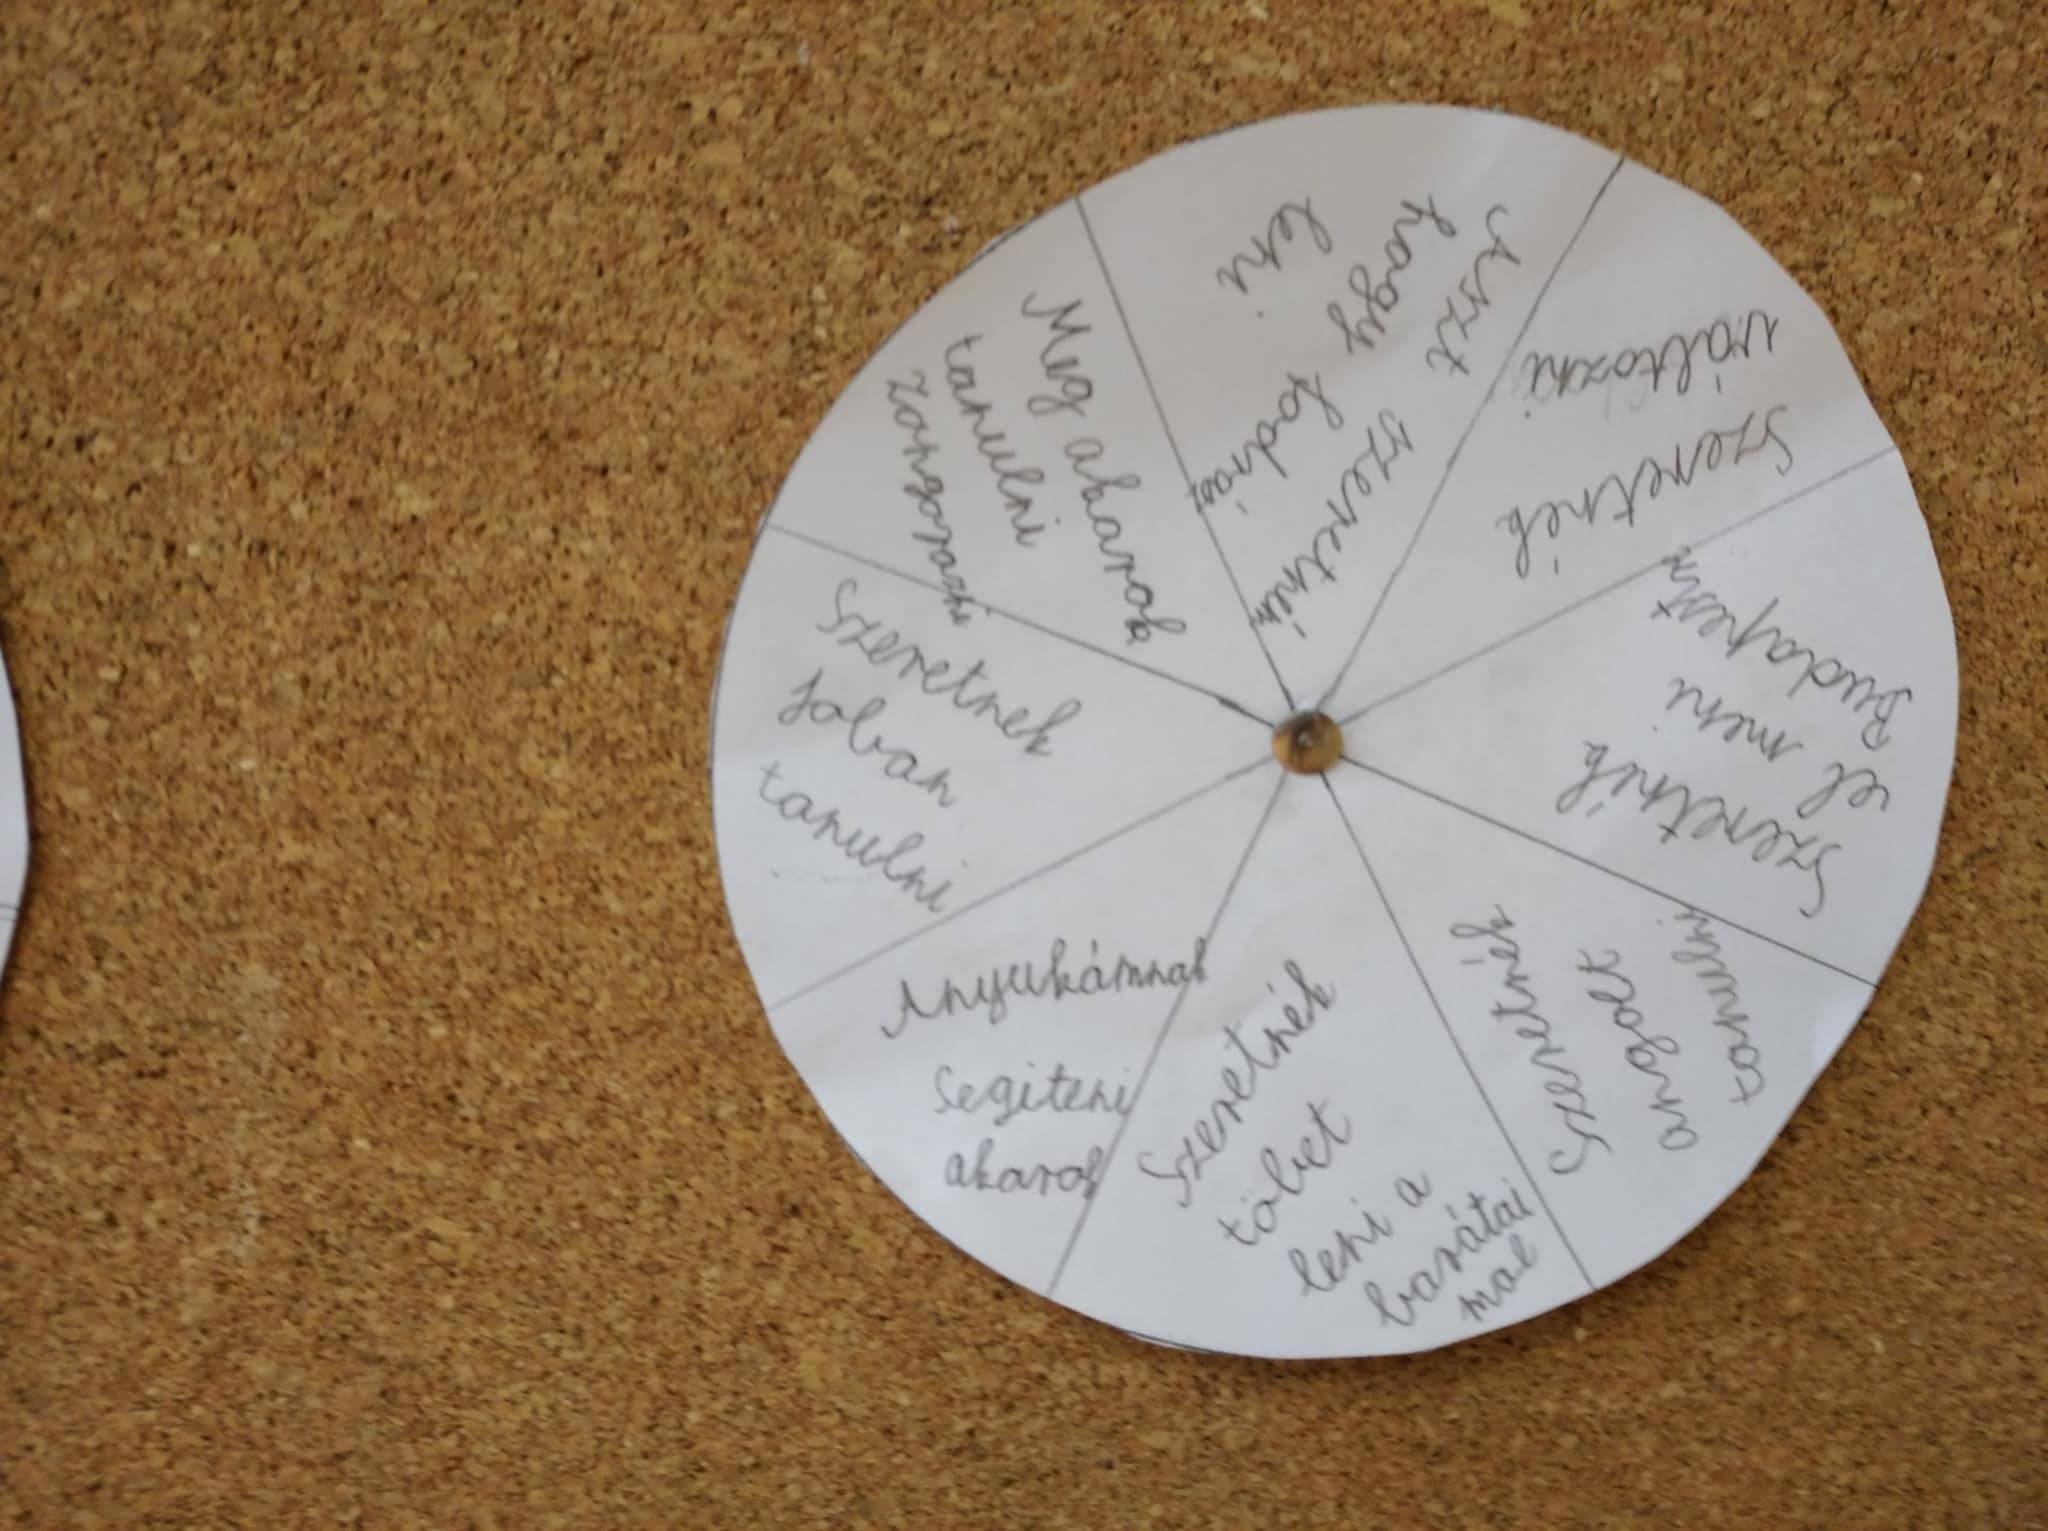 Meg akarok
tanulni
zongorazni
Aszt szeretném
hogy fodrász
leni
Szeretnék
változni
Szeretnék
el meni
Szeretnék
angolt
tanulni
Szeretnék
töbet
leni a
barátai
mal
Anyukámnak
Segiteni
akarok
Szeretnek
Joban
tanulni